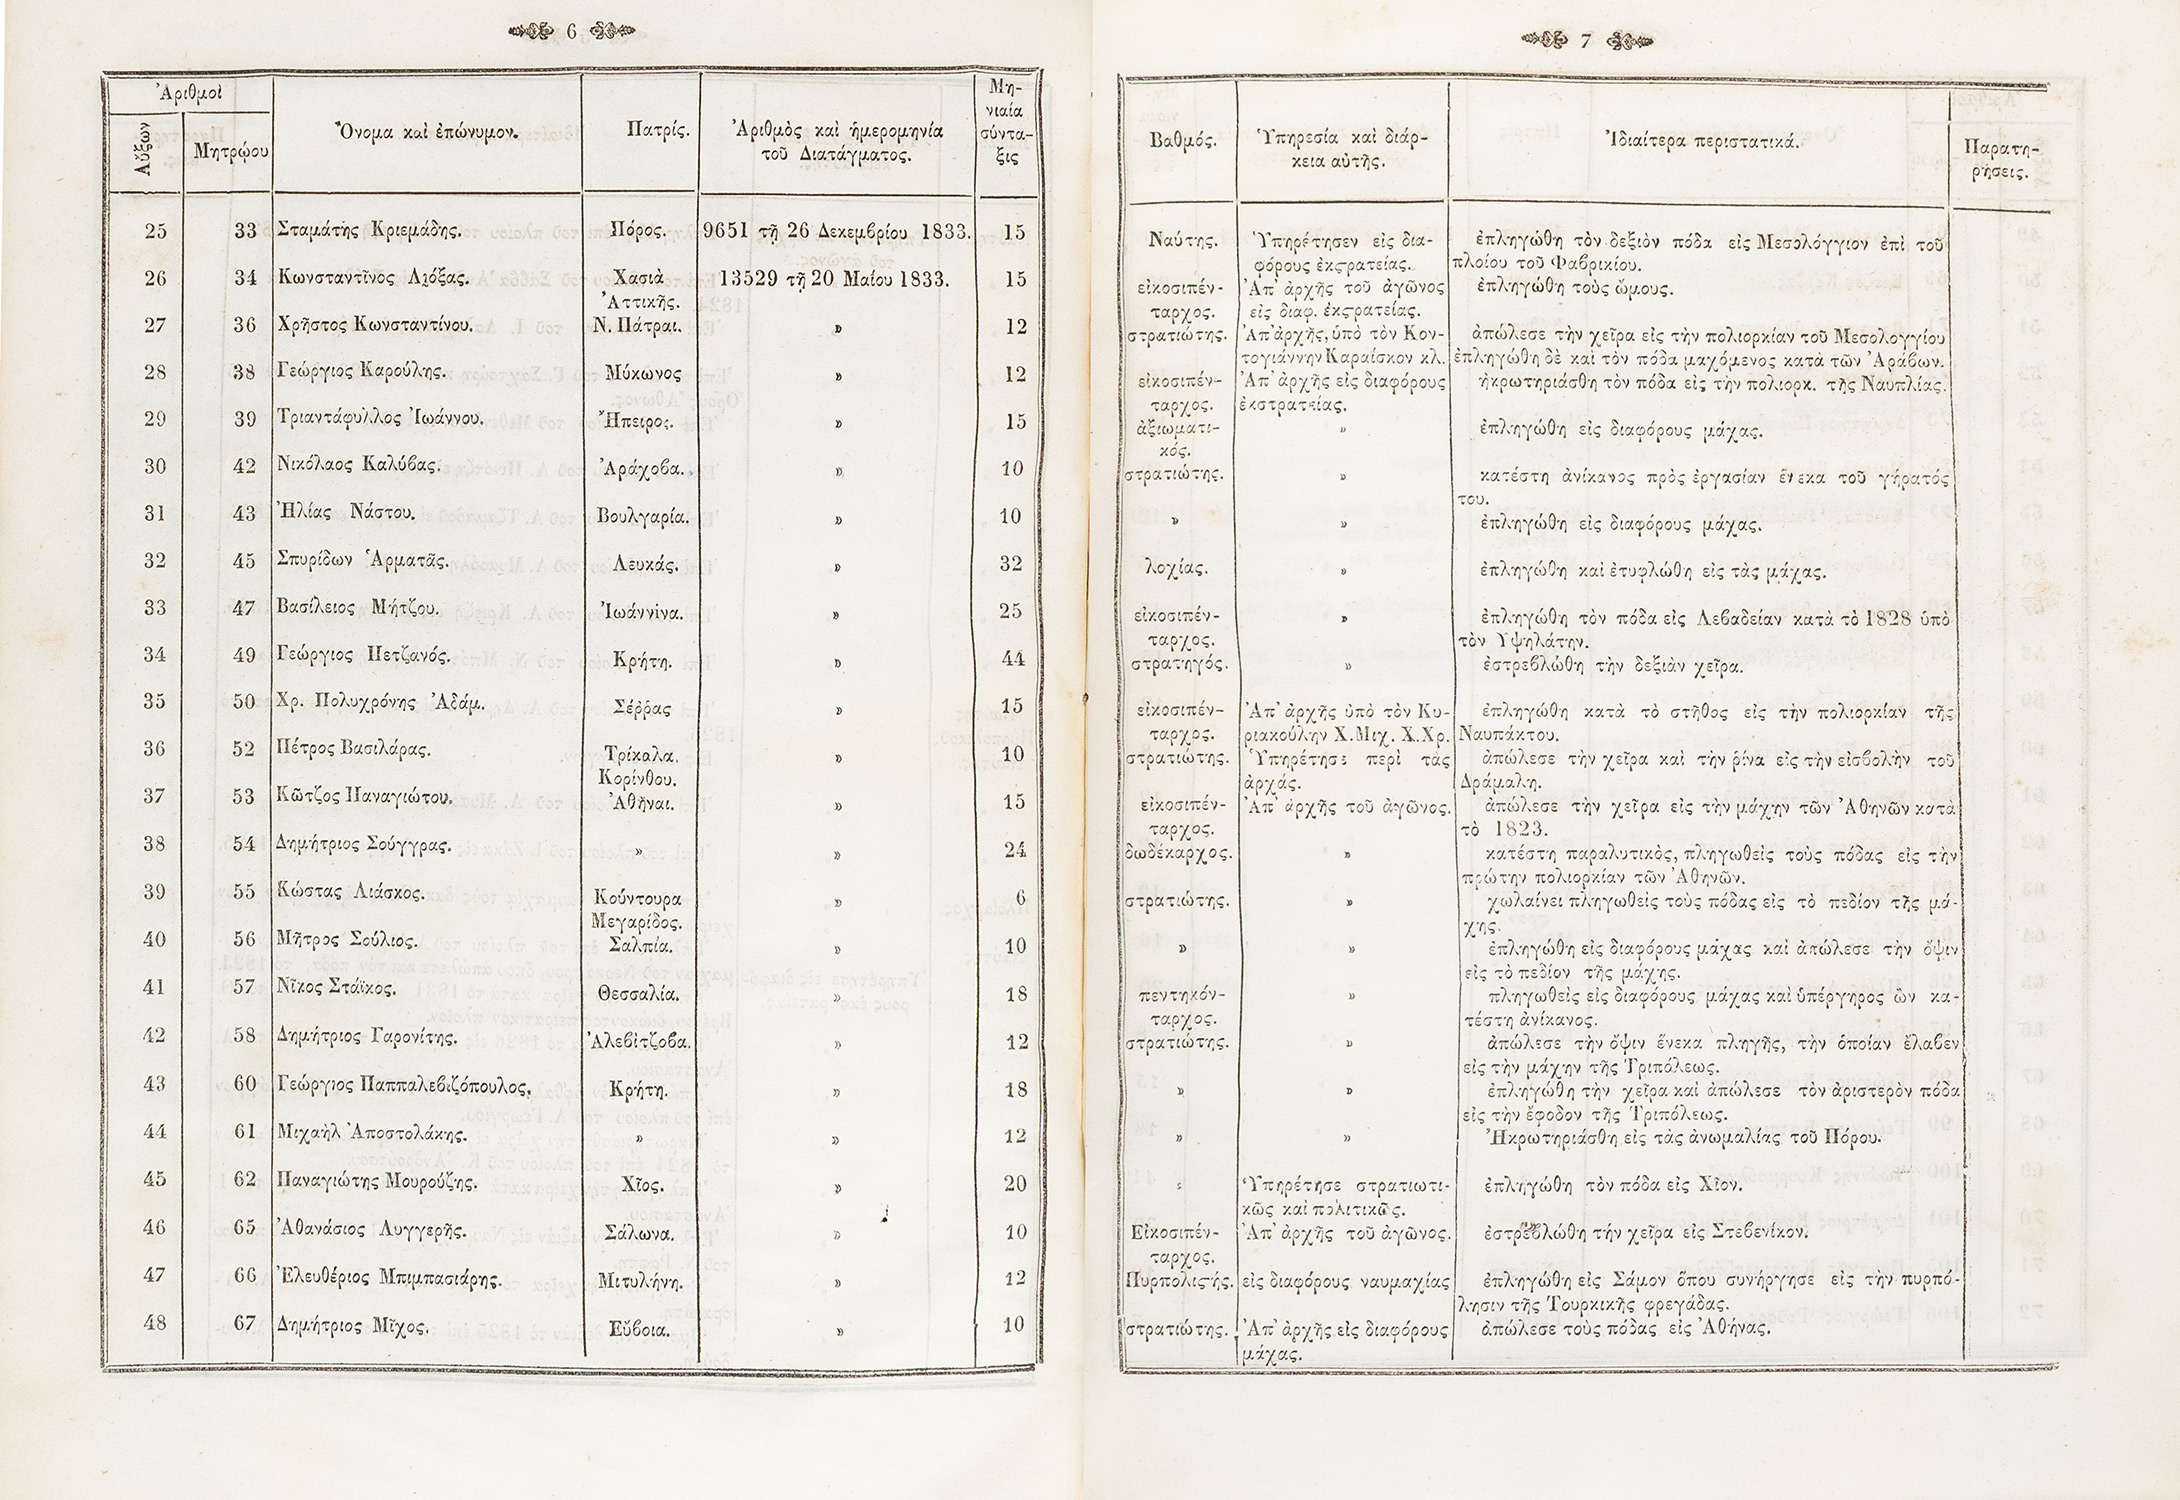 6
Ἀριθμοὶ
Αὔξων
Μητρῴου
Ὄνομα καὶ ἐπώνυμον.
Πατρίς.
Ἀριθμὸς καὶ ἡμερομηνία
τοῦ Διατάγματος.
Μη-
νιαία
σύντα-
ξις
25 33 Σταμάτης Κριεμάδης. Πόρος. 9651 τῇ 26 Δεκεμβρίου 1833. 15
26 34 Κωνσταντῖνος Λιόξας. Χασιὰ 13529 τῇ 20 Μαΐου 1833. 15
Ἀττικῆς.
27 36 Χρῆστος Κωνσταντίνου. Ν. Πάτραι. » 12
28 38 Γεώργιος Καρούλης. Μύκωνος » 12
29 39 Τριαντάφυλλος Ἰωάννου. Ἤπειρος. » 15
30 42 Νικόλαος Καλύβας. Ἀράχοβα. » 10
31 43 Ἠλίας Νάστου. Βουλγαρία. » 10
32 45 Σπυρίδων Ἁρματᾶς. Λευκάς. » 32
33 47 Βασίλειος Μήτζου. Ἰωάννινα. » 25
34 49 Γεώργιος Πετζανός. Κρήτη. » 44
35 50 Χρ. Πολυχρόνης Ἀδάμ. Σέῤῥας » 15
36 52 Πέτρος Βασιλάρας. Τρίκαλα. » 10
Κορίνθου.
37 53 Κῶτζος Παναγιώτου. Ἀθῆναι. » 15
38 54 Δημήτριος Σούγγρας. » » 24
39 55 Κώστας Λιάσκος. Κούντουρα » 6
Μεγαρίδος.
40 56 Μῆτρος Σούλιος. Σαλπία. » 10
41 57 Νῖκος Στάϊκος. Θεσσαλία. » 18
42 58 Δημήτριος Γαρονίτης. Ἀλεβίτζοβα. » 12
43 60 Γεώργιος Παππαλεβιζόπουλος. Κρήτη. » 18
44 61 Μιχαὴλ Ἀποστολάκης. » » 12
45 62 Παναγιώτης Μουρούζης. Χῖος. » 20
46 65 Ἀθανάσιος Λυγγερῆς. Σάλωνα. » 10
47 66 Ἐλευθέριος Μπιμπασιάρης. Μιτυλήνη. » 12
48 67 Δημήτριος Μῖχος. Εὔβοια. » 10
7
Βαθμός.
Ὑπηρεσία καὶ διάρ-
κεια αὐτῆς.
Ἰδιαίτερα περιστατικά.
Παρατη-
ρήσεις.
Ναύτης. Ὑπηρέτησεν εἰς δια- ἐπληγώθη τὸν δεξιὸν πόδα εἰς Μεσολόγγιον ἐπὶ τοῦ
φόρους ἐκςρατείας. πλοίου τοῦ Φαβρικίου.
εἰκοσιπέν- Ἀπ' ἀρχῆς τοῦ ἀγῶνος ἐπληγώθη τοὺς ὤμους.
ταρχος. εἰς διαφ. ἐκςρατείας.
στρατιώτης. Ἀπ' ἀρχῆς, ὑπὸ τὸν Κον- ἀπώλεσε τὴν χεῖρα εἰς τὴν πολιορκίαν τοῦ Μεσολογγίου
τογιάννην Καραίσκον κλ. ἐπληγώθη δὲ καὶ τὸν πόδα μαχόμενος κατὰ τῶν Ἀράβων.
εἰκοσιπέν- Ἀπ' ἀρχῆς εἰς διαφόρους ἠκρωτηριάσθη τὸν πόδα εἰς τὴν πολιορκ. τῆς Ναυπλίας.
ταρχος. ἐκστρατείας.
ἀξιωματι- » ἐπληγώθη εἰς διαφόρους μάχας.
κός.
στρατιώτης. » κατέστη ἀνίκανος πρὸς ἐργασίαν ἕνεκα τοῦ γήρατός
του.
» » ἐπληγώθη εἰς διαφόρους μάχας.
λοχίας. » ἐπληγώθη καὶ ἐτυφλώθη εἰς τὰς μάχας.
εἰκοσιπέν- » ἐπληγώθη τὸν πόδα εἰς Λεβαδείαν κατὰ τὸ 1828 ὑπὸ
ταρχος. τὸν Υψηλάτην.
στρατηγός. » ἐστρεβλώθη τὴν δεξιὰν χεῖρα.
εἰκοσιπέν- Ἀπ' ἀρχῆς ὑπὸ τὸν Κυ- ἐπληγώθη κατὰ τὸ στῆθος εἰς τὴν πολιορκίαν τῆς
ταρχος. ριακούλην Χ. Μιχ. Χ. Χρ. Ναυπάκτου.
στρατιώτης. Ὑπηρέτησε περὶ τὰς ἀπώλεσε τὴν χεῖρα καὶ τὴν ῥίνα εἰς τὴν εἰσβολὴν τοῦ
ἀρχάς. Δράμαλη.
εἰκοσιπέν- Ἀπ' ἀρχῆς τοῦ ἀγῶνος. ἀπώλεσε τὴν χεῖρα εἰς τὴν μάχην τῶν Ἀθηνῶν κατὰ
ταρχος. τὸ 1823.
δωδέκαρχος. » κατέστη παραλυτικὸς, πληγωθεὶς τοὺς πόδας εἰς τὴν
πρώτην πολιορκίαν τῶν Ἀθηνῶν.
στρατιώτης. » χωλαίνει πληγωθεὶς τοὺς πόδας εἰς τὸ πεδίον τῆς μά-
χης.
» » ἐπληγώθη εἰς διαφόρους μάχας καὶ ἀπώλεσε τὴν ὄψιν
εἰς τὸ πεδίον τῆς μάχης.
πεντηκόν- » πληγωθεὶς εἰς διαφόρους μάχας καὶ ὑπέργηρος ὢν κα-
ταρχος. τέστη ἀνίκανος.
στρατιώτης. » ἀπώλεσε τὴν ὄψιν ἕνεκα πληγῆς, τὴν ὁποίαν ἔλαβεν
εἰς τὴν μάχην τῆς Τριπόλεως.
» » ἐπληγώθη τὴν χεῖρα καὶ ἀπώλεσε τὸν ἀριστερὸν πόδα
εἰς τὴν ἔφοδον τῆς Τριπόλεως.
» » Ἠκρωτηριάσθη εἰς τὰς ἀνωμαλίας τοῦ Πόρου.
Ὑπηρέτησε στρατιωτι- ἐπληγώθη τὸν πόδα εἰς Χῖον.
κῶς καὶ πολιτικῶς.
Εἰκοσιπέν- Ἀπ' ἀρχῆς τοῦ ἀγῶνος. ἐστρεβλώθη τήν χεῖρα εἰς Στεβενίκον.
ταρχος.
Πυρπολιστής. εἰς διαφόρους ναυμαχίας ἐπληγώθη εἰς Σάμον ὅπου συνήργησε εἰς τὴν πυρπό-
λησιν τῆς Τουρκικῆς φρεγάδας.
στρατιώτης. Ἀπ' ἀρχῆς εἰς διαφόρους ἀπώλεσε τοὺς πόδας εἰς Ἀθήνας.
μάχας.